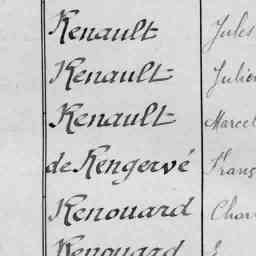 Renault Jules
Renault Julien
Renault Marcel
de Rengervé Franç
Renouard Char
Renouard